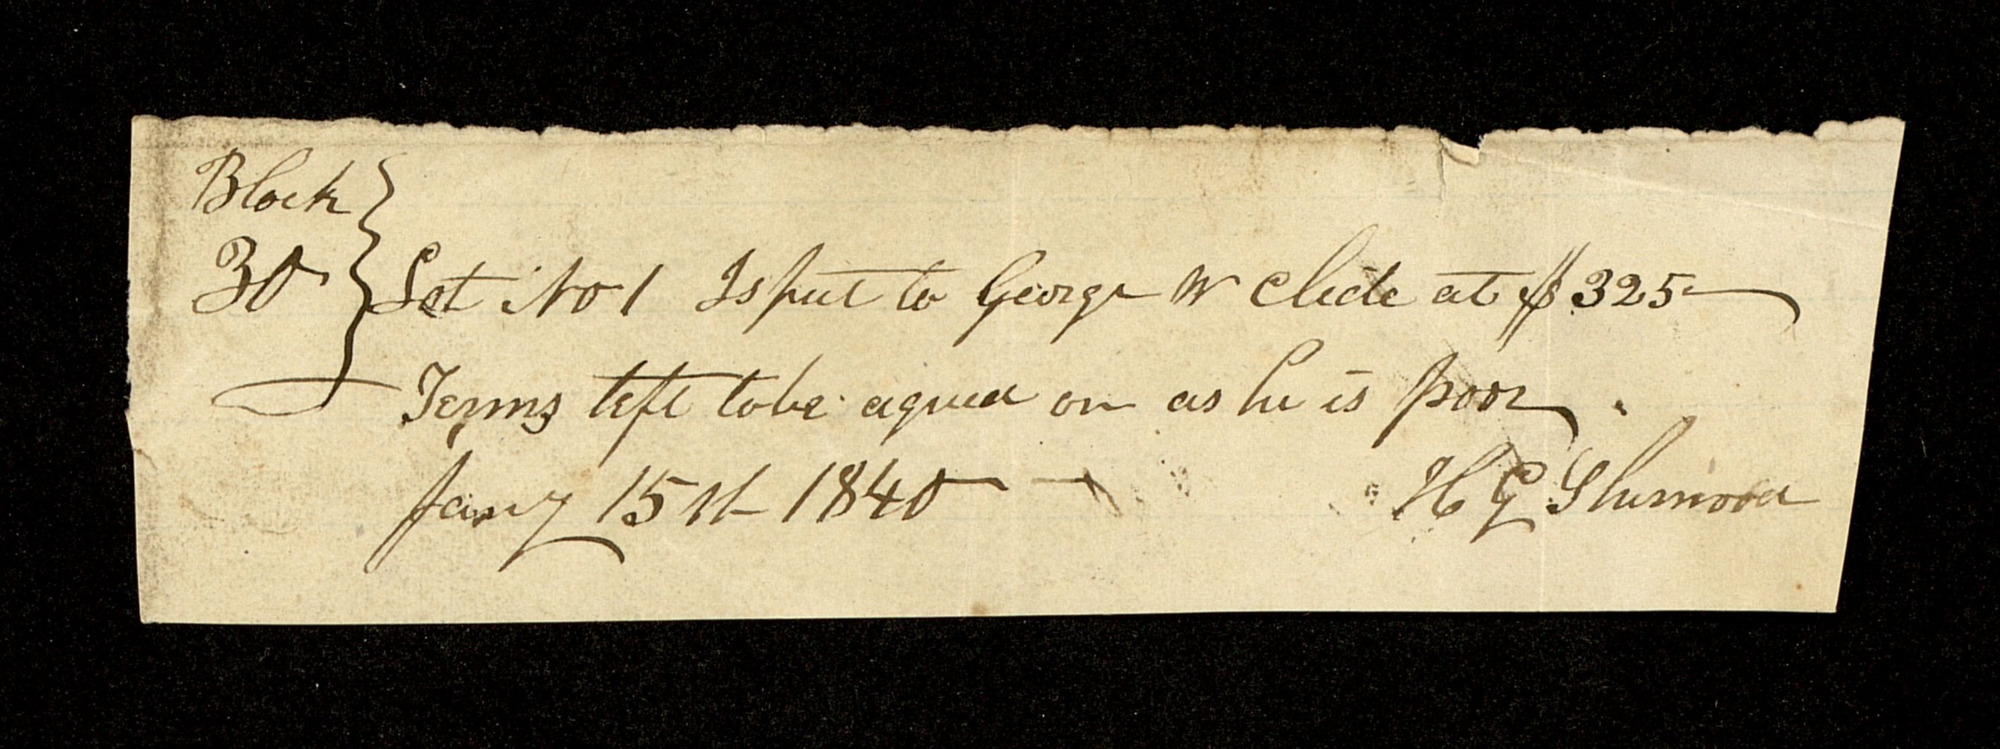 Block
30
Lot No 1 Is put to George W Clide at $325
Terms left to be agreed on as he is poor
Jany 15th 1840
H G Sherwood